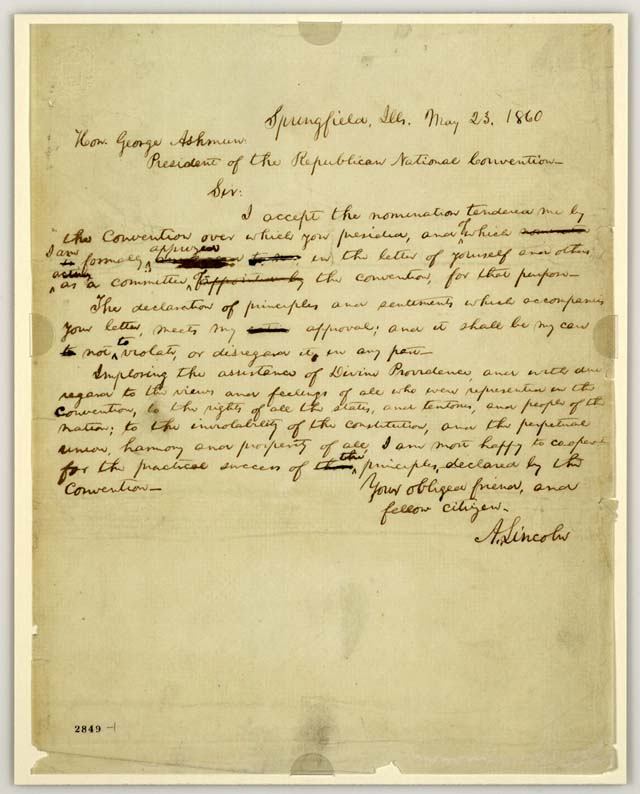 Springfield, Ills. May 23, 1860
Hon. George Ashmun:
President of the Republican National Convention—
Sir:
I accept the nomination tendered me by
the Convention over which you presided, and of which
I am formally apprized in the letter of yourself and others
acting as a committee, of the convention, for that purpose—
The declaration of principles and sentiments which accompanies
your letter, meets my approval; and it shall be my care
not to violate, or disregard it, in any part—
Imploring the assistance of Divine Providence, and with due
regard to the views and feelings of all who were represented in the
Convention; to the rights of all the states, and territories, and people of the
nation; to the inviolability of the constitution, and the perpetual
union, harmony and prosperity of all, I am most happy to co-operate
for the practical success of the principles, declared by the
Convention—
Your obliged friend, and
fellow citizen—
A. Lincoln
2849